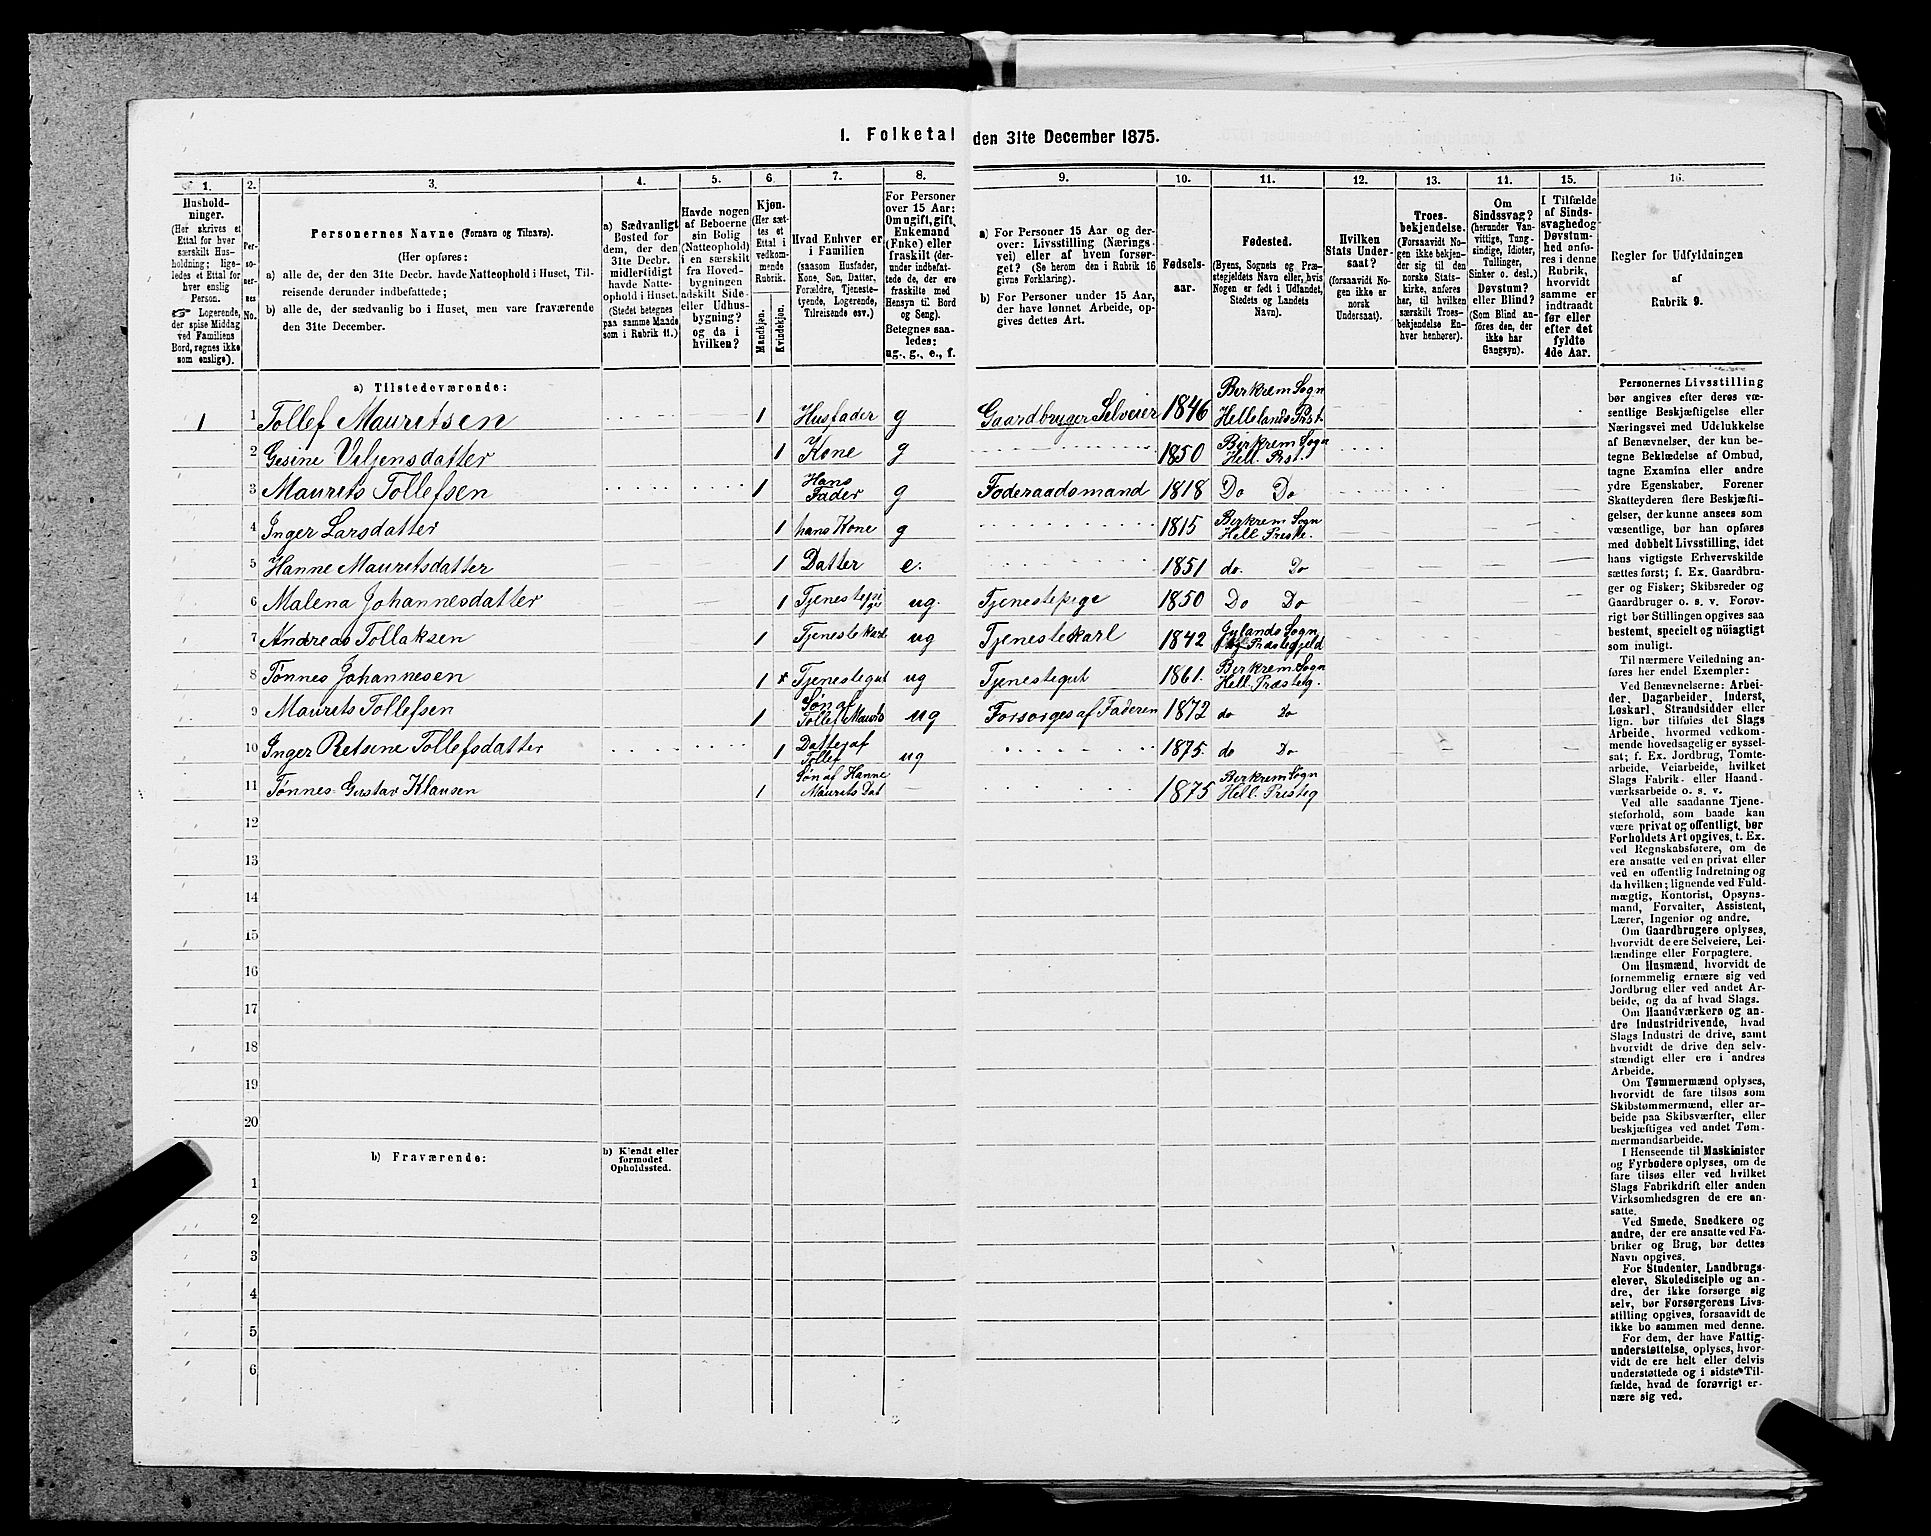 1. Folketal den 31te December 1875.
1. 2. 3. 4. 5. 6. 7. 8. 9. 10. 11. 12. 13. 14. 15. 16.
Hushold-
ninger.
(Her skrives et
Ettal for hver
særskilt Hus-
holdning; lige-
ledes et Ettal for
hver enslig
Person.
☞ Logerende,
der spise Middag
ved Familiens
Bord, regnes ikke
som enslige).
Per-
so-
ner-
nes
No.
Personernes Navne (Fornavn og Tilnavn).
(Her opføres:
a) alle de, der den 31te Decbr. havde Natteophold i Huset, Til-
reisende derunder indbefattede;
b) alle de, der sædvanlig bo i Huset, men vare fraværende
den 31te December.
a) Sædvanligt
Bosted for
dem, der den
31te Decbr.
midlertidigt
havde Natte-
ophold i Huset.
(Stedet betegnes
paa samme Maade
som i Rubrik 11.)
Havde nogen
af Beboerne
sin Bolig
(Natteophold)
i en særskilt
fra Hoved-
bygningen
adskilt Side-
eller Udhus-
bygning?
og da i
hvilken?
Kjøn.
(Her sæt-
tes et
Ettal i
vedkom-
mende
Rubrik.
Mandkjøn.
Kvindekjøn.
Hvad Enhver er
i Familien
(saasom Husfader,
Kone, Søn, Datter,
Forældre, Tjeneste-
tyende, Logerende,
Tilreisende osv.)
For Personer
over 15 Aar:
Om ugift, gift,
Enkemand
(Enke) eller
fraskilt
(derunder indbefat-
tede de, der ere
fraskilte med
Hensyn til Bord
og Seng).
Betegnes saa-
ledes:
ug., g., e., f.
a) For Personer 15 Aar og der-
over: Livsstilling (Nærings-
vei) eller af hvem forsør-
get? (Se herom den i Rubrik 16
givne Forklaring).
b) For Personer under 15 Aar,
der have lønnet Arbeide, op-
gives dettes Art.
Fødsels-
aar.
Fødested.
(Byens, Sognets og Præ-
stegjeldets Navn eller, hvis
Nogen er født i Udlandet,
Stedets og Landets
Navn).
Hvilken
Stats Under-
saat?
(forsaavidt No-
gen ikke er
norsk
Undersaat).
Troes-
bekjendelse.
(Forsaavidt No-
gen ikke bekjen-
der sig til den
norske Stats-
kirke, anføres
her, til hvilken
særskilt Troes-
bekjendelse En-
hver henhører).
Om
Sindssvag?
(herunder Van-
vittige, Tung-
sindige, Idioter,
Tullinger,
Sinker o. desl.)
Døvstum?
eller Blind?
(Som Blind an-
føres den, der
ikke har
Gangsyn).
I Tilfælde
af Sinds-
svaghed og
Døvstum-
hed anfø-
res i denne
Rubrik,
hvorvidt
samme er
indtraadt
før eller
efter det
fyldte
4de Aar.
Regler for Udfyldningen
af
Rubrik 9.
a) Tilstedeværende:
1 1 Tollef Mauritsen 1 Husfader g Gaardbruger Selveier 1846 Birkrem Sogn Hellelands Prst.
2 Gesine Veljensdatter 1 Kone g 1850 Birkrem Sogn Hell. Prst.
3 Maurits Tollefsen 1 Hans Fader g Føderaadsmand 1818 Do Do
4 Inger Larsdatter 1 hans Kone g 1815 Birkrem Sogn Hell. Preste.
5 Hanne Mauritsdatter 1 Datter e. 1851 do. Do
6 Malena Johannesdatter 1 Tjenestepige ug. Tjenestepige 1850 Do Do
7 Andreas Tollaksen 1 Tjenestekarl ug Tjenestekarl 1842 Gylands Sogn Præstegjeld
8 Tønnes Johannesen 1 Tjenestegut ug Tjenestegut 1861. Birkrem Sogn Hell. Præsteg.
9 Maurits Tollefsen 1 Søn af Tollef Maurits ug Forsorges af Faderen 1872 do Do
10 Inger Retsine Tollefsdatter 1 Datter af Tollef ug 1875. do Do
11 Tønnes Gustav Klausen 1 Søn af Hanne Maurits Dat 1875 Birkrem Sogn Hell. Presteg
12
13
14
15
16
17
18
19
20
b) Fraværende:
b) Kjendt eller
formodet
Opholdssted.
1
2
3
4
5
6
Personernes Livsstilling
bør angives efter deres væ-
sentlige Beskjæftigelse eller
Næringsvei med Udelukkelse
af Benævnelser, der kun be-
tegne Beklædelse af Ombud,
tagne Examina eller andre
ydre Egenskaber. Forener
Skatteyderen flere Beskjæfti-
gelser, der kunne ansees som
væsentlige, bør han opføres
med dobbelt Livsstilling, idet
hans vigtigste Erhvervskilde
sættes først; f. Ex. Gaardbru-
ger og Fisker; Skibsreder og
Gaardbruger o. s. v. Forøv-
rigt bør Stillingen opgives saa
bestemt, specielt og nøiagtigt
som muligt.
Til nærmere Veiledning an-
føres her endel Exempler:
Ved Benævnelserne: Arbei-
der, Dagarbeider, Inderst,
Løskarl, Strandsidder eller
lign. bør tilføies det Slags
Arbeide, hvormed vedkom-
mende hovedsagelig er syssel-
sat; f. Ex. Jordbrug, Tomte-
arbeide, Veiarbeide, hvilket
Slags Fabrik- eller Haand-
værksarbeide o. s. v.
Ved alle saadanne Tjene-
steforhold, som baade kan
være privat og offentligt, bør
Forholdets Art opgives, t. Ex.
ved Regnskabsførere, om de
ere ansatte ved en privat eller
ved en offentlig Indretning og
da hvilken; lignende ved Fuld-
mægtig, Kontorist, Opsyns-
mand, Forvalter, Assistent,
Lærer, Ingeniør og andre.
Om Gaardbrugere oplyses,
hvorvidt de ere Selveiere, Lei-
lændinge eller Forpagtere.
Om Husmænd, hvorvidt de
fornemmelig ernære sig ved
Jordbrug eller ved andet Ar-
beide, og da af hvad Slags.
Om Haandværkere og an-
dre Industridrivende, hvad
Slags Industri de drive, samt
hvorvidt de drive den selv-
stændigt eller ere i andres
Arbeide.
Om Tømmermænd oplyses,
hvorvidt de fare tilsøs som
Skibstømmermænd, eller ar-
beide paa Skibsværfter, eller
beskjæftiges ved andet Tøm-
mermandsarbeide.
I Henseende til Maskinister
og Fyrbødere oplyses, om de
fare tilsøs eller ved hvilket
Slags Fabrikdrift eller anden
Virksomhedsgren de ere an-
satte.
Ved Smede, Snedkere og
andre, der ere ansatte ved Fa-
briker og Brug, bør dettes
Navn opgives.
For Studenter, Landbrugs-
elever, Skoledisciple og an-
dre, der ikke forsørge sig
selv, bør Forsørgerens Livs-
stilling opgives, forsaavidt de
ikke bo sammen med denne.
For dem, der have Fattig-
understøttelse, oplyses, hvor-
vidt de ere helt eller delvis
understøttede og i sidste Til-
fælde, hvad de forøvrigt er-
nære sig ved.